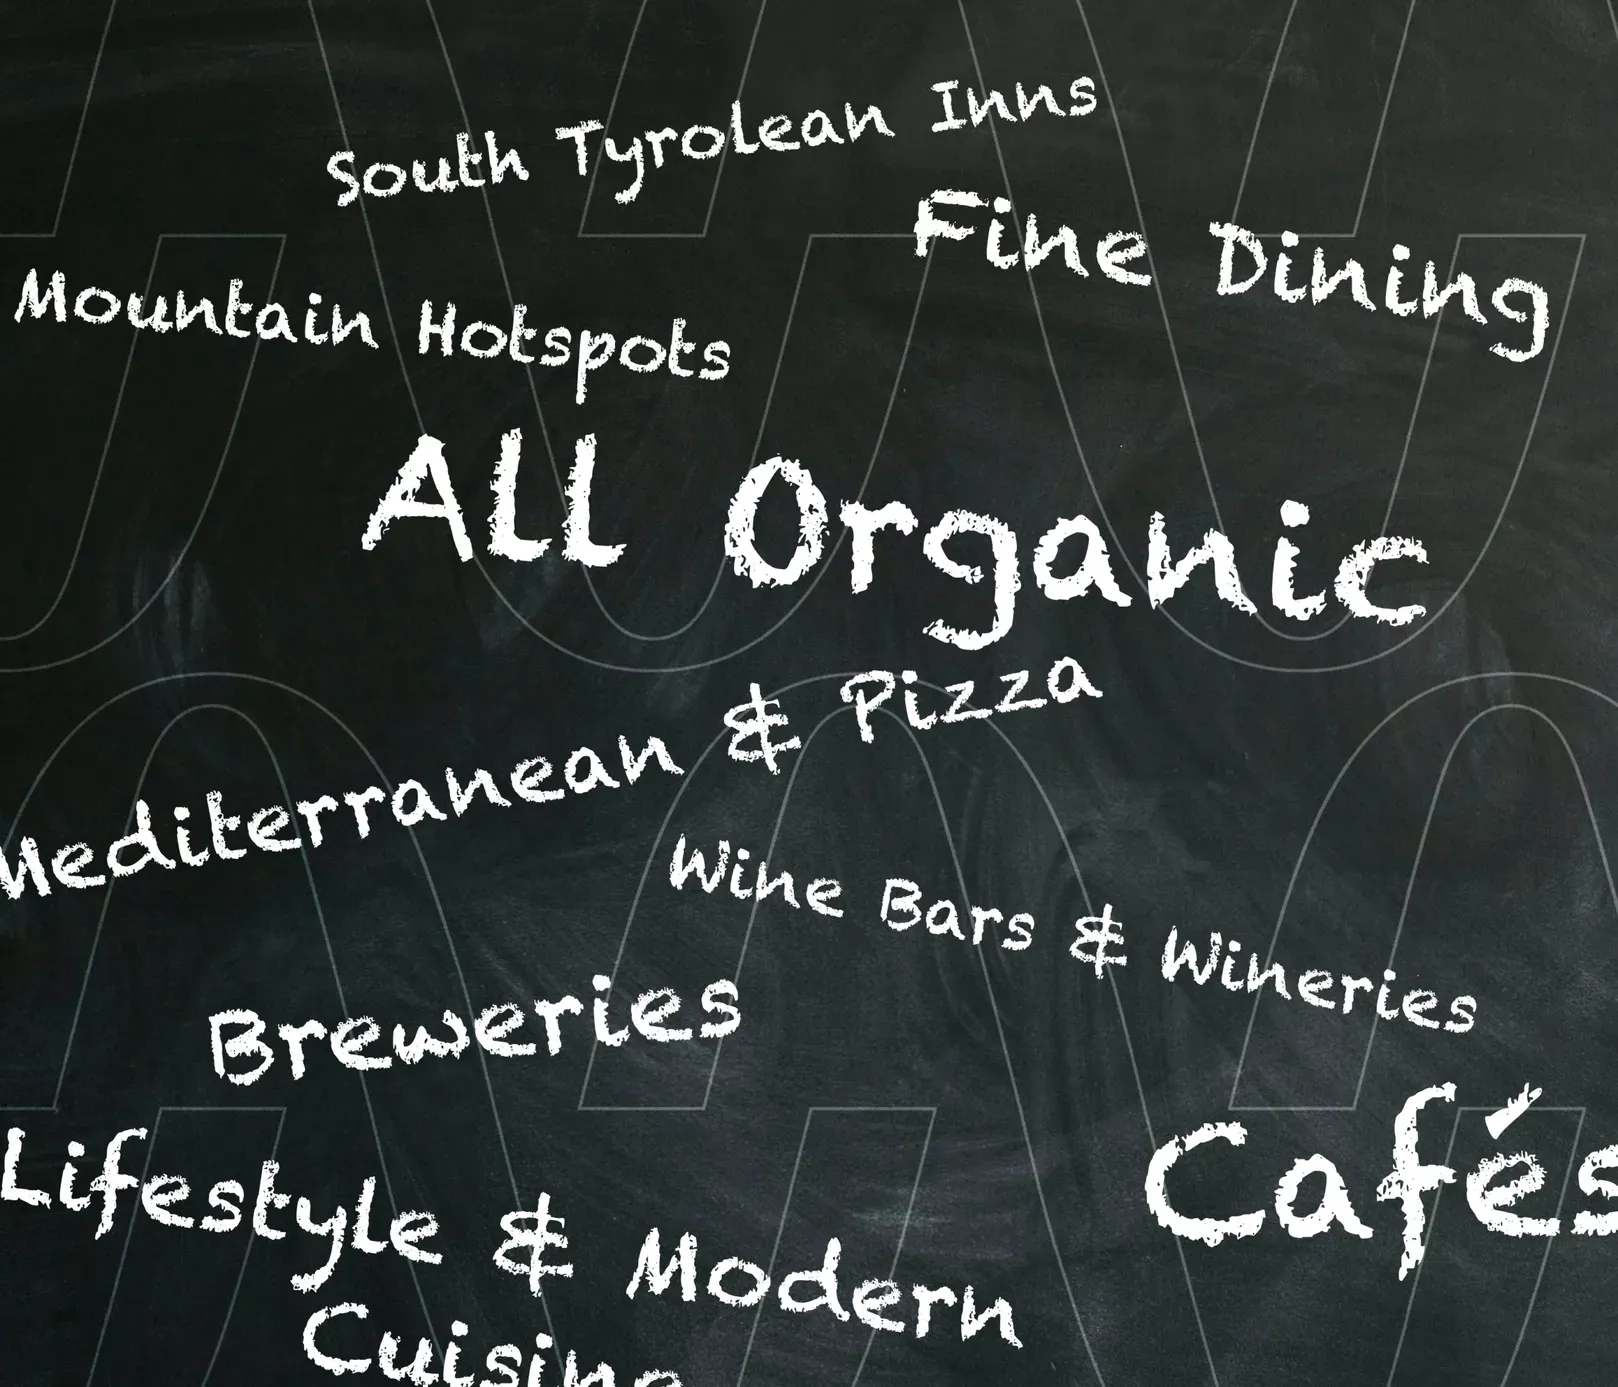 South Tyrolean Inns
Fine Dining
Mountain Hotspots
All Organic
Mediterranean & Pizza
Wine Bars & Wineries
Breweries
Cafés
Lifestyle & Modern
Cuisine